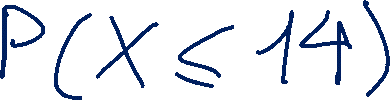 P(X ≤ 14)